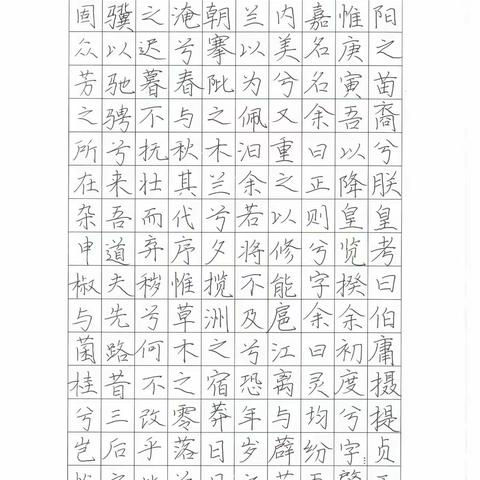 阳之苗裔兮朕皇考曰伯庸摄提贞
惟庚寅吾以降皇览揆余初度兮字
嘉名名余曰正则兮字余曰灵均纷
内美兮又重之以修能扈江离与薜
兰以为佩汩余若将不及兮恐年岁
朝搴阰之木兰兮夕揽洲之宿莽日
淹兮春与秋其代序惟草木之零落
之迟暮不抚壮而弃秽兮何不改乎
骥以驰骋兮来吾道夫先路昔三后
固众芳之所在杂申椒与菌桂兮岂